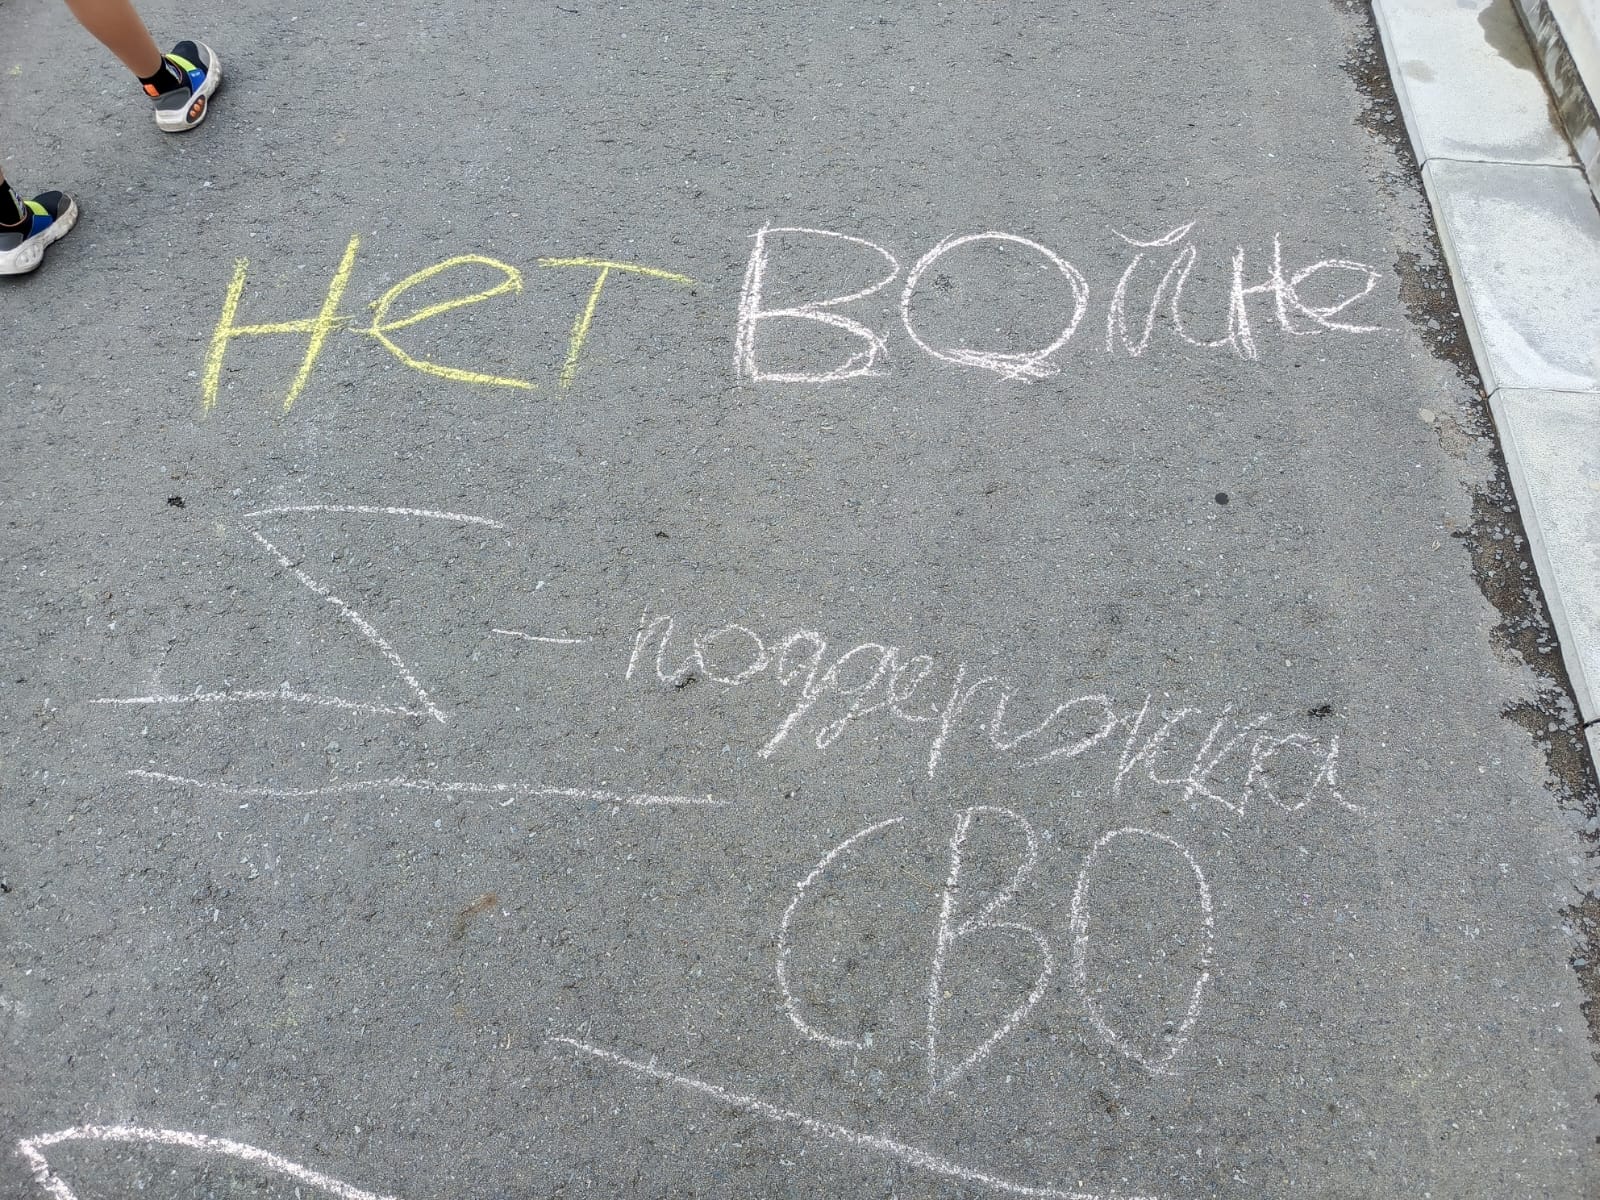 нет война
Z - поддержка
СВО